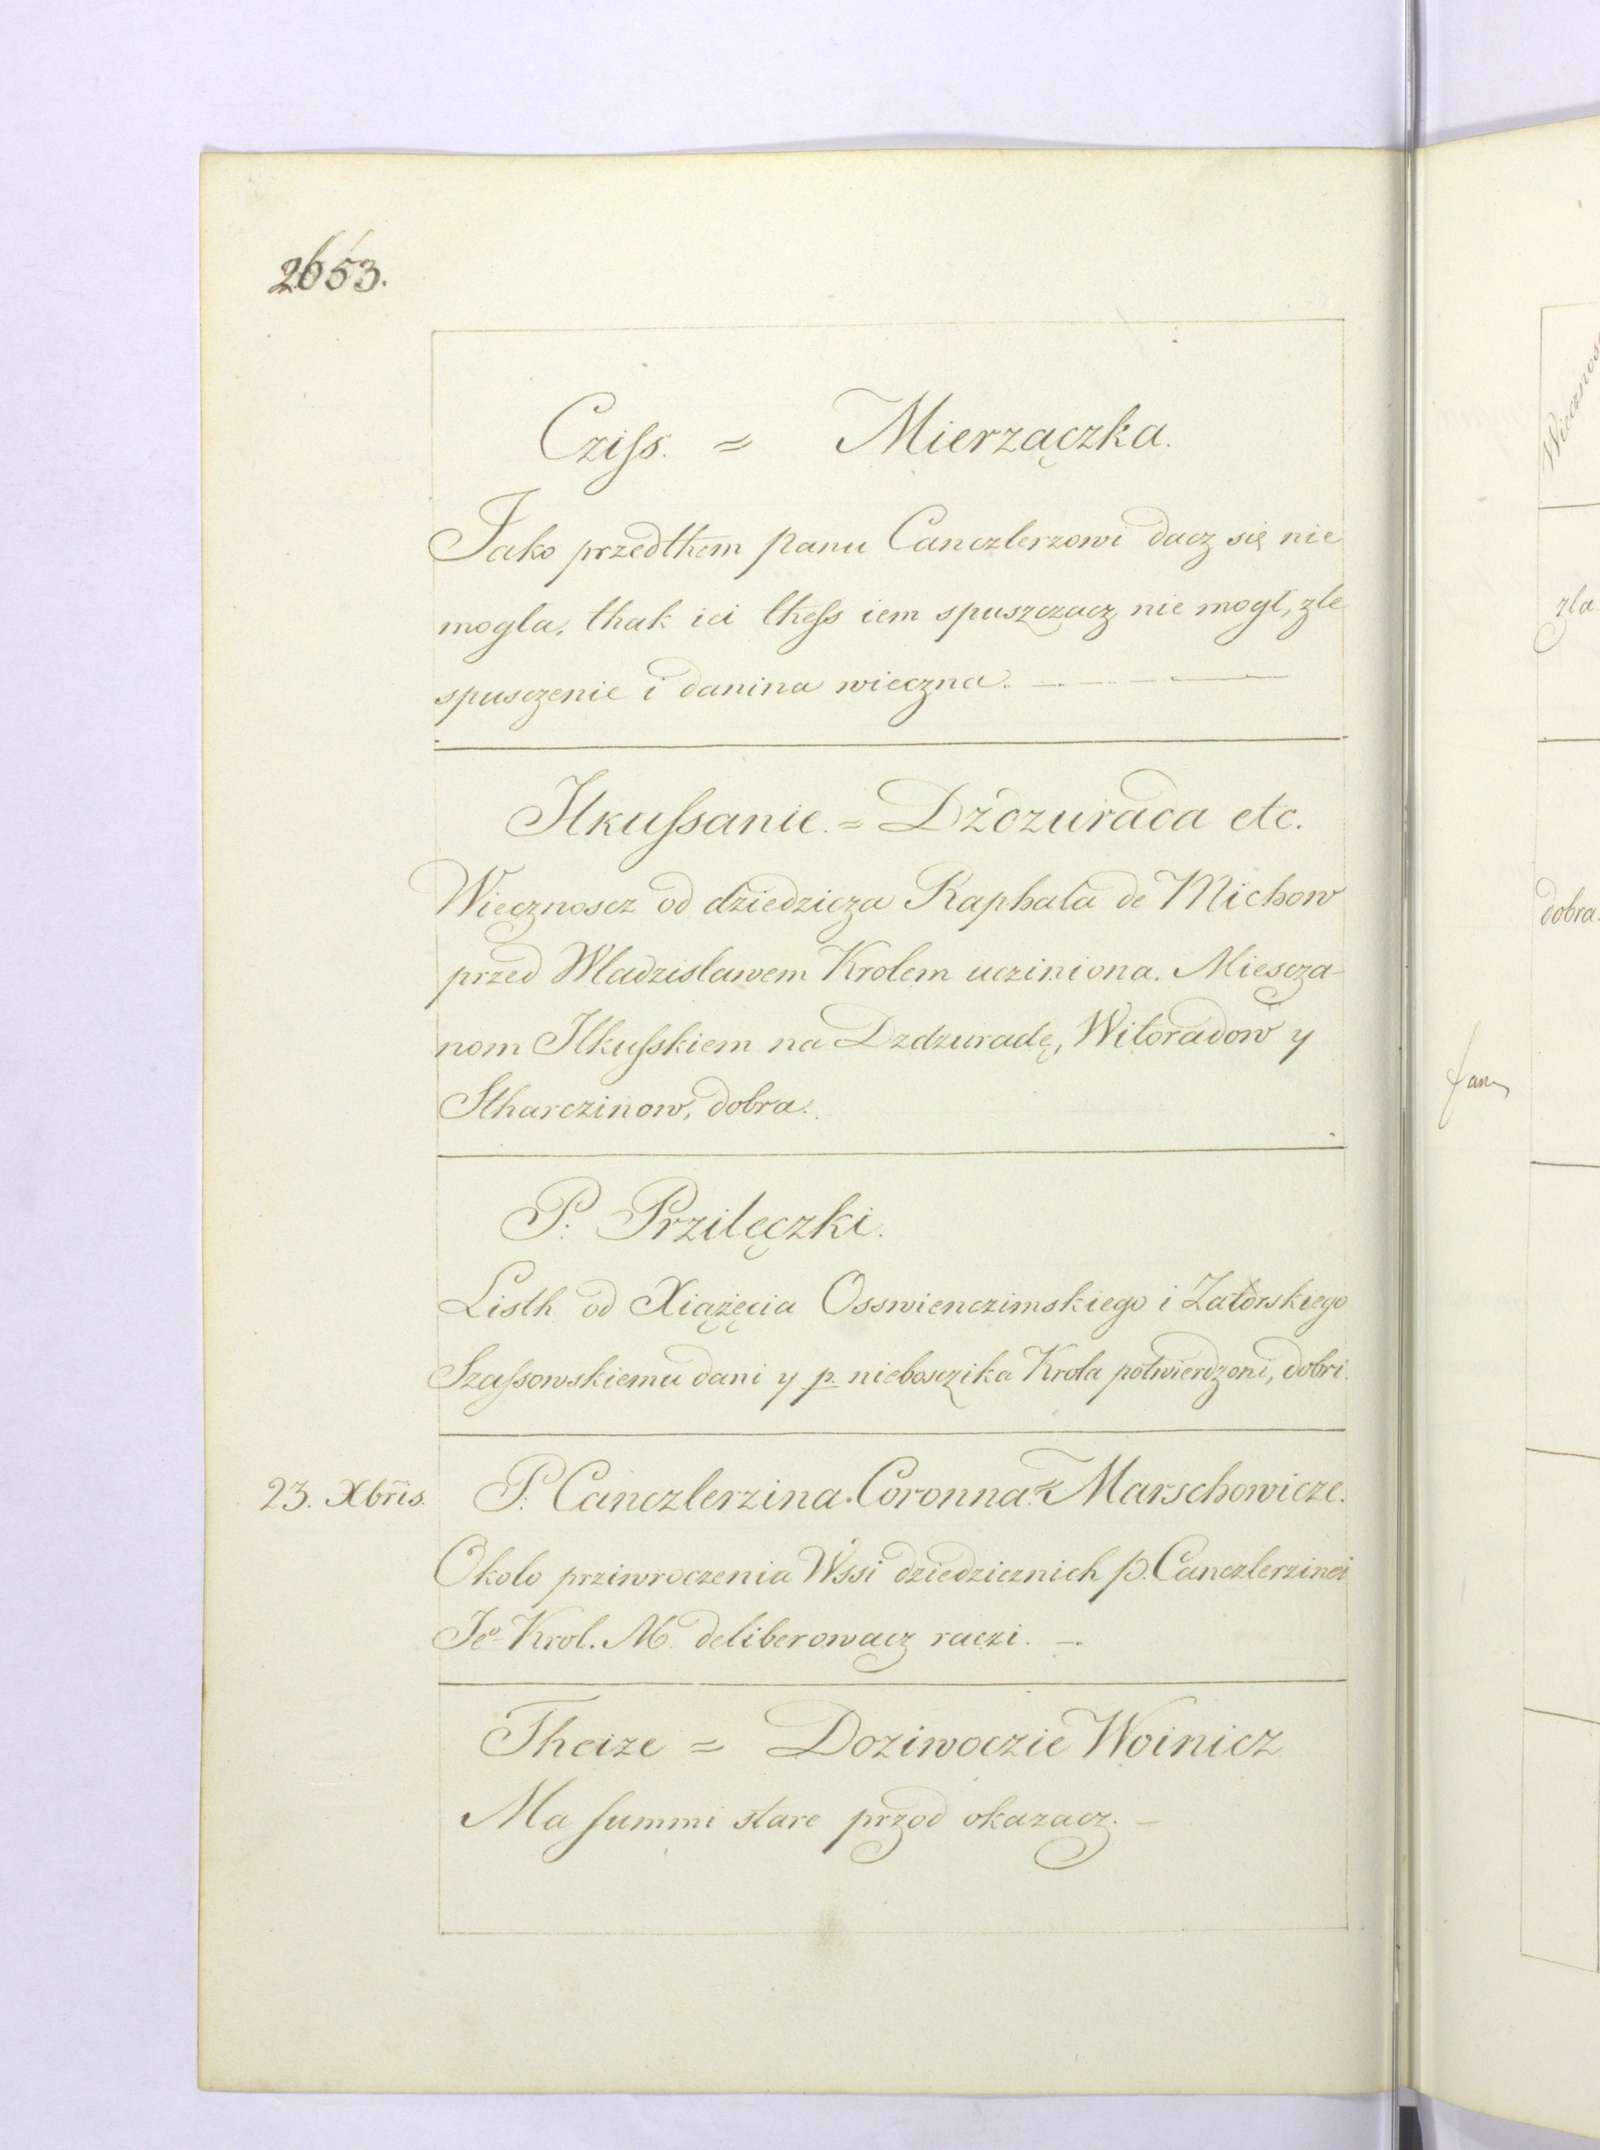 2653.
Cziss. = Mierzączka.
Jako przedthem panu Canczlerzowi dacz się nie
mogla, thak iei thess iem spuszczacz nie mogl, zle
spusczenie i danina wieczna.
Ilkussanie. = Dzdzuraca etc.
Wiecznoscz od dziedzicza Raphala de Michow
przed Wladzislawem Krolem ucziniona. Miescza-
nom Ilkusskiem na Dzdzuradę, Witoradow y
Stharczinow, dobra.
P. Przilęczki.
Listh od Xiążęcia Osswienczimskiego i Zatorskiego
Szassowskiemu dani y p. nieboszczika Krola potwierdzoni, dobri.
23. Xbris. P. Canczlerzina Coronna = Marschowicze.
Okolo prziwroczenia Wssi dziedzicznich p. Canczlerzinei
Jeo Krol. M. deliberowacz raczi.
Theize = Doziwoczie Woinicz
Ma summi stare przod okazacz.
zla
dobra.